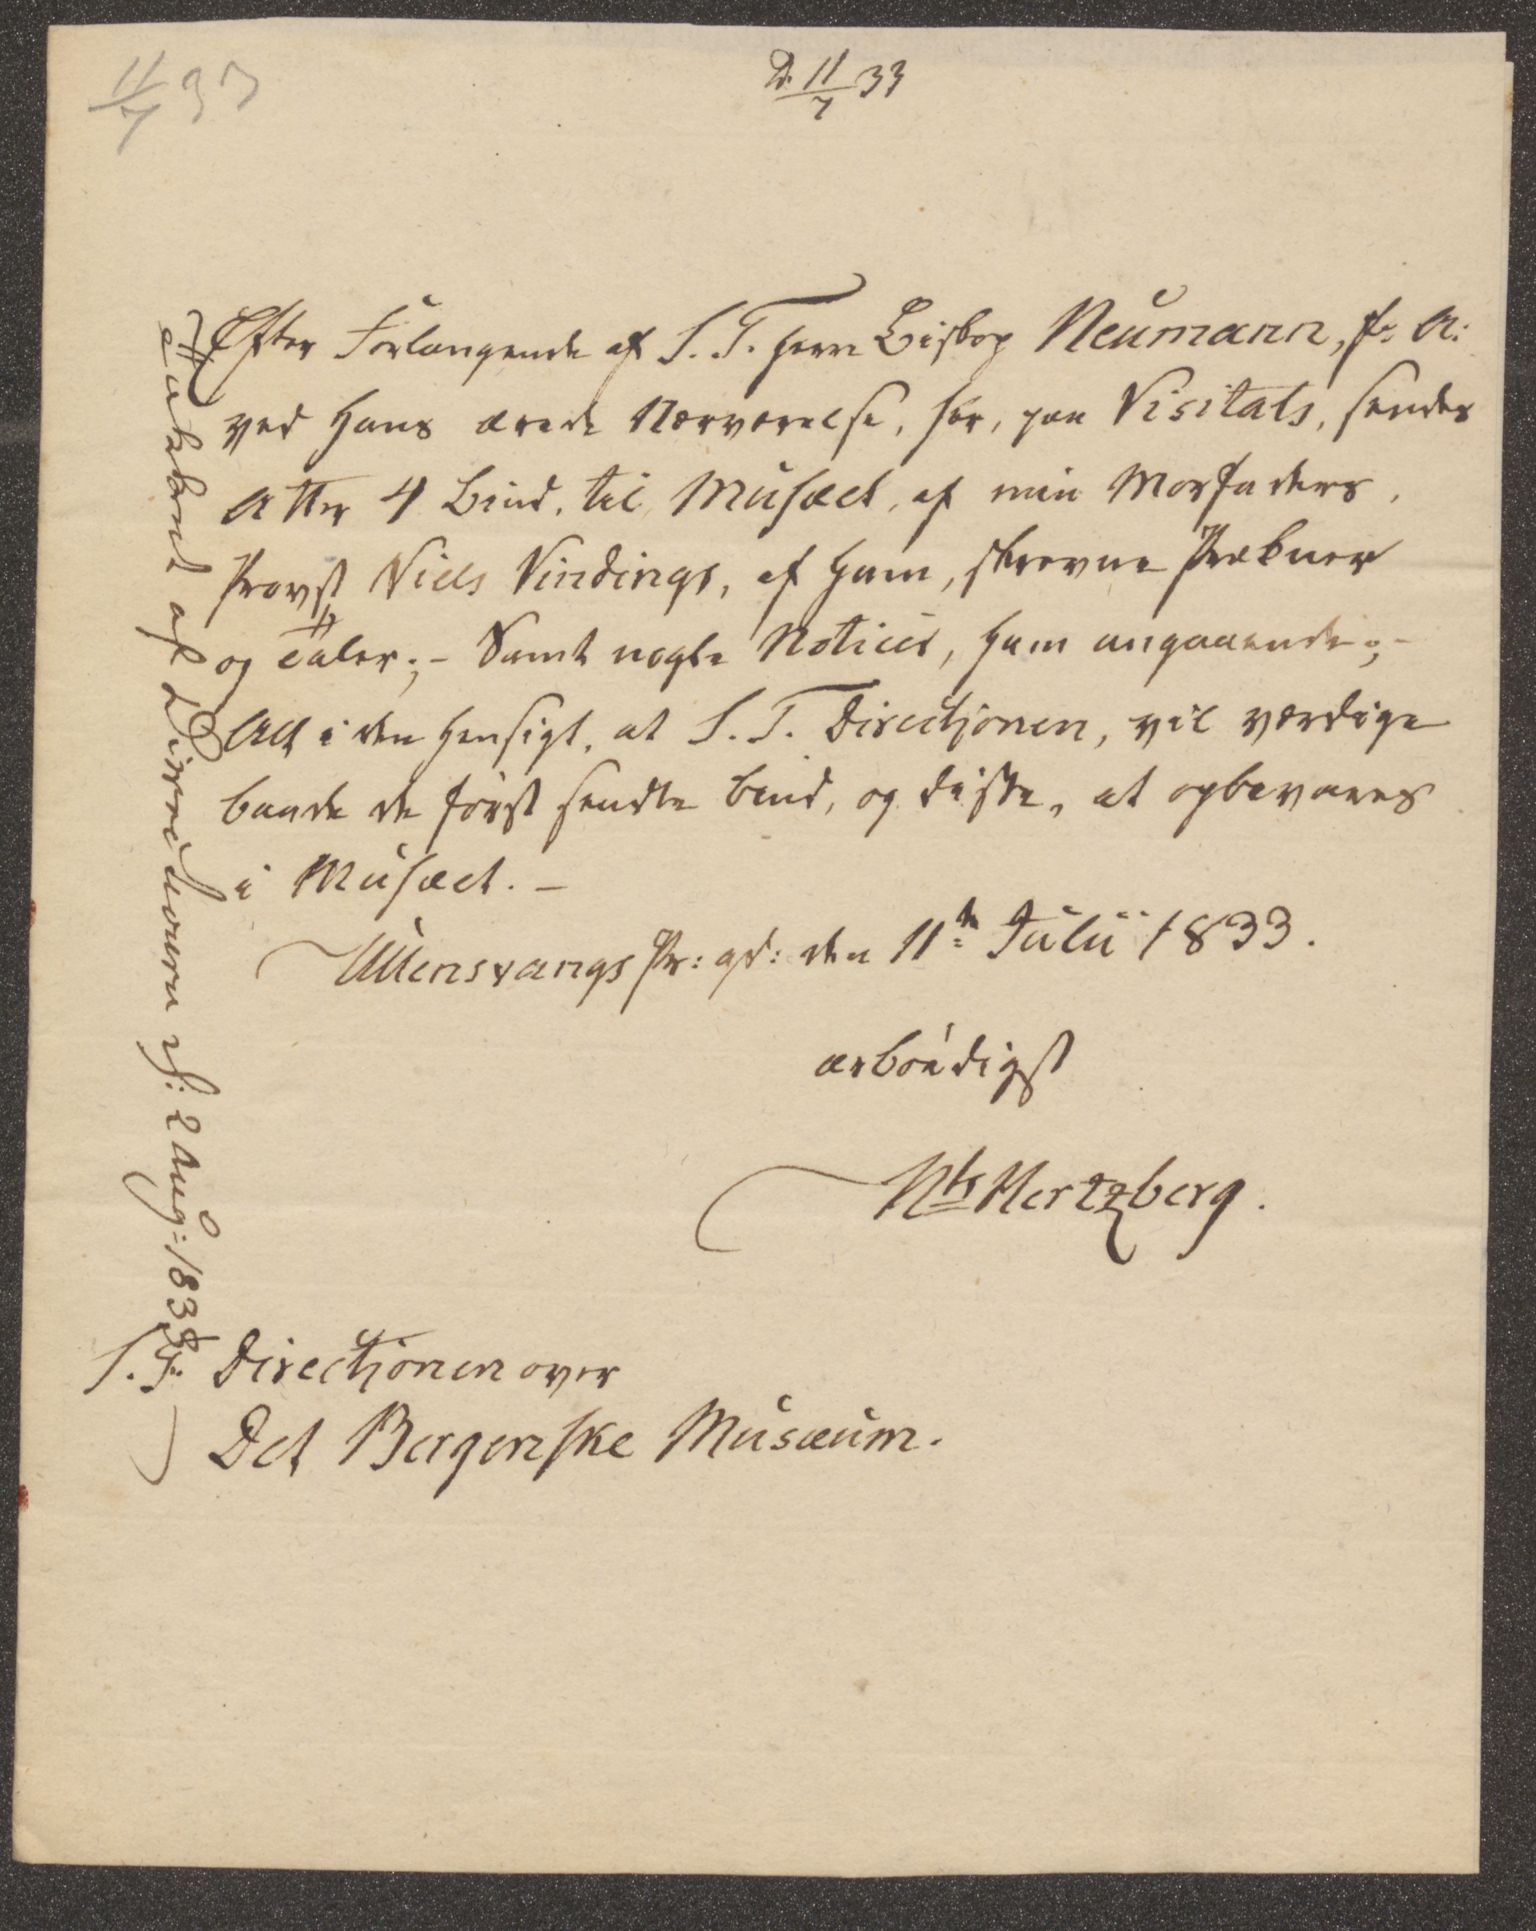 11/7 33
D. 11/7 33
Efter Forlangende af S. T. Herr Biskop Neumann, f: A:
ved Hans ærede Nærværelse, her, paa Visitats, sendes
atter 4 Bind, til Musæet, af min Morfaders,
Provst Niels Vindings, af Ham, skrevne Prækner
og Taler; - Samt nogle Notices, Ham angaaende; -
Alt i den Hensigt, at S. T. Directjonen, vil værdige
baade de først sendte Bind, og disse, at opbevares
i Musæet. -
Ullensvangs Pr: gd: den 11te Julii 1833.
ærbødigst
Ns Hertzberg.
S. T. Directjonen over
Det Bergenske Musæum.
af Directionen d: 2 Aug: 1833